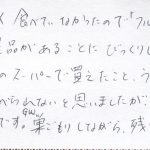 く食べていなかったので「フル
品があることにびっくりし
のスーパーで買えたこと、う
べられないと思いましたが、
です。GW巣ごもりしながら、残